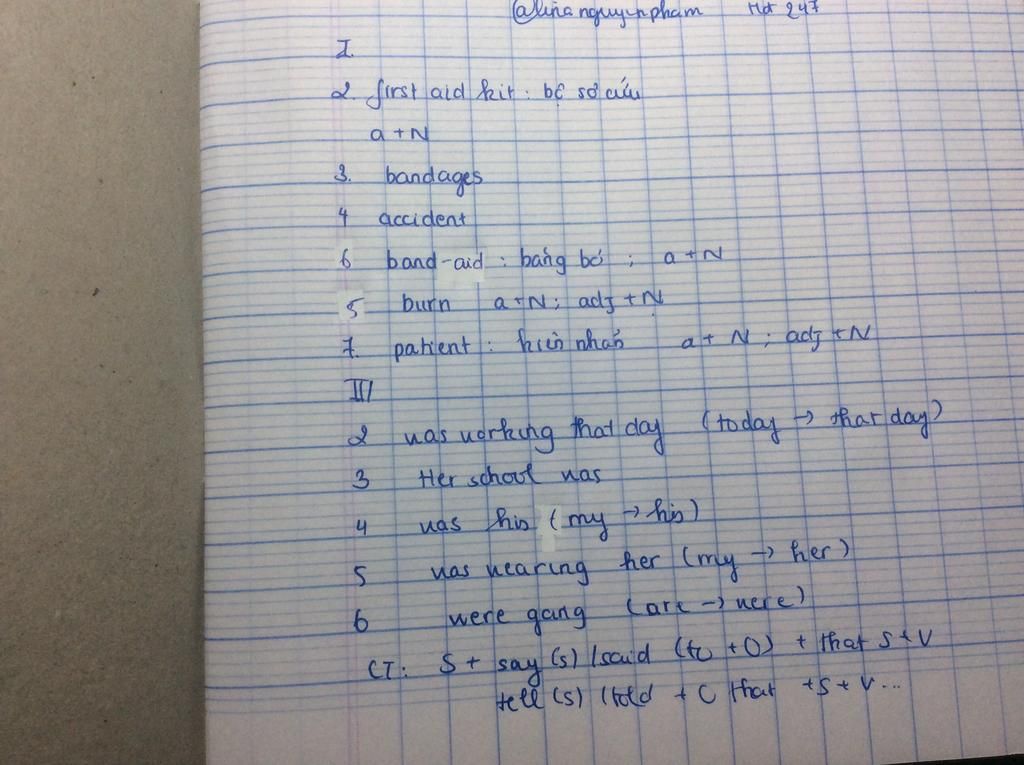 @linanguyenpham Hđ 247
I
2. first aid kit : bộ sơ cứu
a + N
3. bandages
4 accident
6 band-aid : băng bó ; a + N
5 burn a + N ; adj + N
7. patient : kiên nhẫn a + N ; adj + N
III
2 was working that day (today → that day)
3 Her school was
4 was his (my → his)
5 was wearing her (my → her)
6 were gang (are → were)
CT: S + say (s) / said (to + O) + that S + V
tell (s) / told + C that + S + V ...